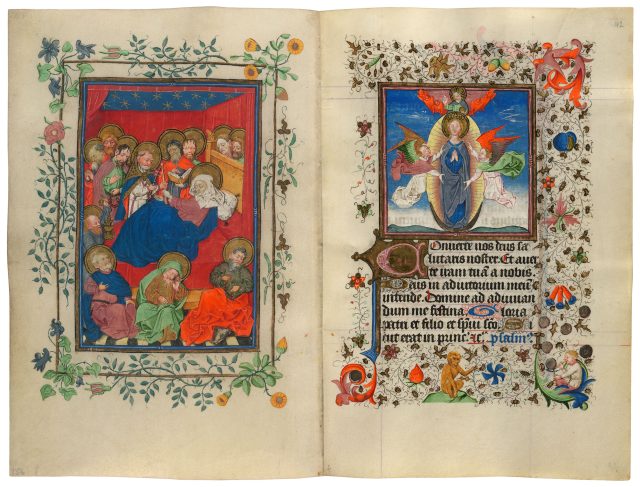 Conuerte nos deus sa
lutaris noster. Et auer
te iram tuā a nobis
Deus in adiutorium meū
intende. Domine ad adiuuan
dum me festina. Gloria
patri et filio et spiui sco. Si
cut erat in princ.